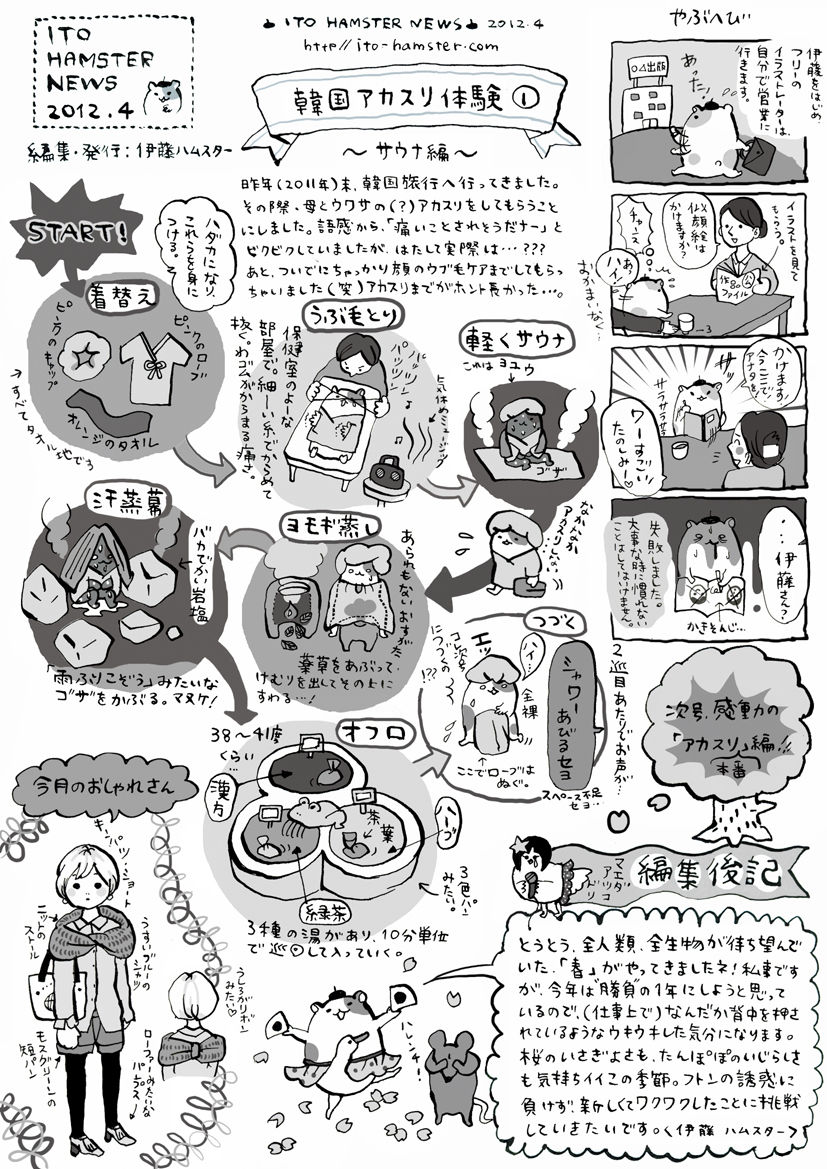 ITO
HAMSTER
NEWS
2012.4
ITO HAMSTER NEWS 2012.4
http://ito-hamster.com
編集・発行:伊藤ハムスター
韓国アカスリ体験①
〜サウナ編〜
昨年(2011年)末、韓国旅行へ行ってきました。
その際、母とウワサの(?)アカスリをしてもらうこと
にしました。語感から、「痛いことされそうだナー」と
ビクビクしていましたが、はたして実際は…???
あと、ついでにちゃっかり顔のウブ毛ケアまでしてもらっ
ちゃいました(笑)アカスリまでがホント長かった…。
START!
ハダカになり、
これらを身に
つける。
着替え
ピンクのキャップ
ピンクのローブ
オレンジのタオル
→すべてタオル地でる
うぶ毛とり
保健室のような
部屋で。細ーい糸でからめて
抜く。わゴムがからまる痛さ。
パッツンパッツン
気休めミュージック
軽くサウナ
これはヨユウ
ゴザ
なかなか
アカスリしない…
ヨモギ蒸し
あられもないおすがた
薬草をあぶって、
けむりを出してその上に
すわる…!
汗蒸幕
バカでかい岩塩
「雨ふりこぞう」みたいな
ゴザをかぶる。マヌケ!
オフロ
38〜41度
くらい
漢方
茶葉
ハーブ
緑茶
3色パン
みたい。
3種の湯があり、10分単位
で巡回して入っていく。
つづく
シャワー
あびるセヨ
ハイ…
エッ
全裸
コレ次号
につづくの
!?
ここでローブは
ぬぐ。
スペース不足
セヨ…
2巡目あたりでお声が…
次号、感動の
「アカスリ」編!!
本番
やぶへび
伊藤をはじめ、
フリーの
イラストレーターは、
自分で営業に
行きます。
○△出版
あった!
イラストを見て
もらう。
似顔絵は
かけますか?
チャンス
あ、ハイ!
おかまいなく…
作品ファイル
かけます!
今ここで
アナタを!
サッ
サラサラサラ
ワーすごい!
たのしみー♡
…伊藤さん?
失敗しました。
大事な時に慣れない
ことはしてはいけません。
かきそんじ…
今月のおしゃれさん
キンパツ・ショート
ニットのストール
うすいブルーのシャツ
うしろがリボンみたい♡
モスグリーンの短パン
ローファーみたいなパンプス
ハレンチー!
マエダアツコブリ
編集後記
とうとう、全人類、全生物が待ち望んで
いた、「春」がやってきましたネ!私事です
が、今年は"勝負"の1年にしようと思って
いるので、(仕事上で)なんだか背中を押さ
れているようなウキウキした気分になります。
桜のいさぎよさも、たんぽぽのいじらしさ
も気持ちイイこの季節。フトンの誘惑に
負けず、新しくてワクワクしたことに挑戦
していきたいです。<伊藤 ハムスター>